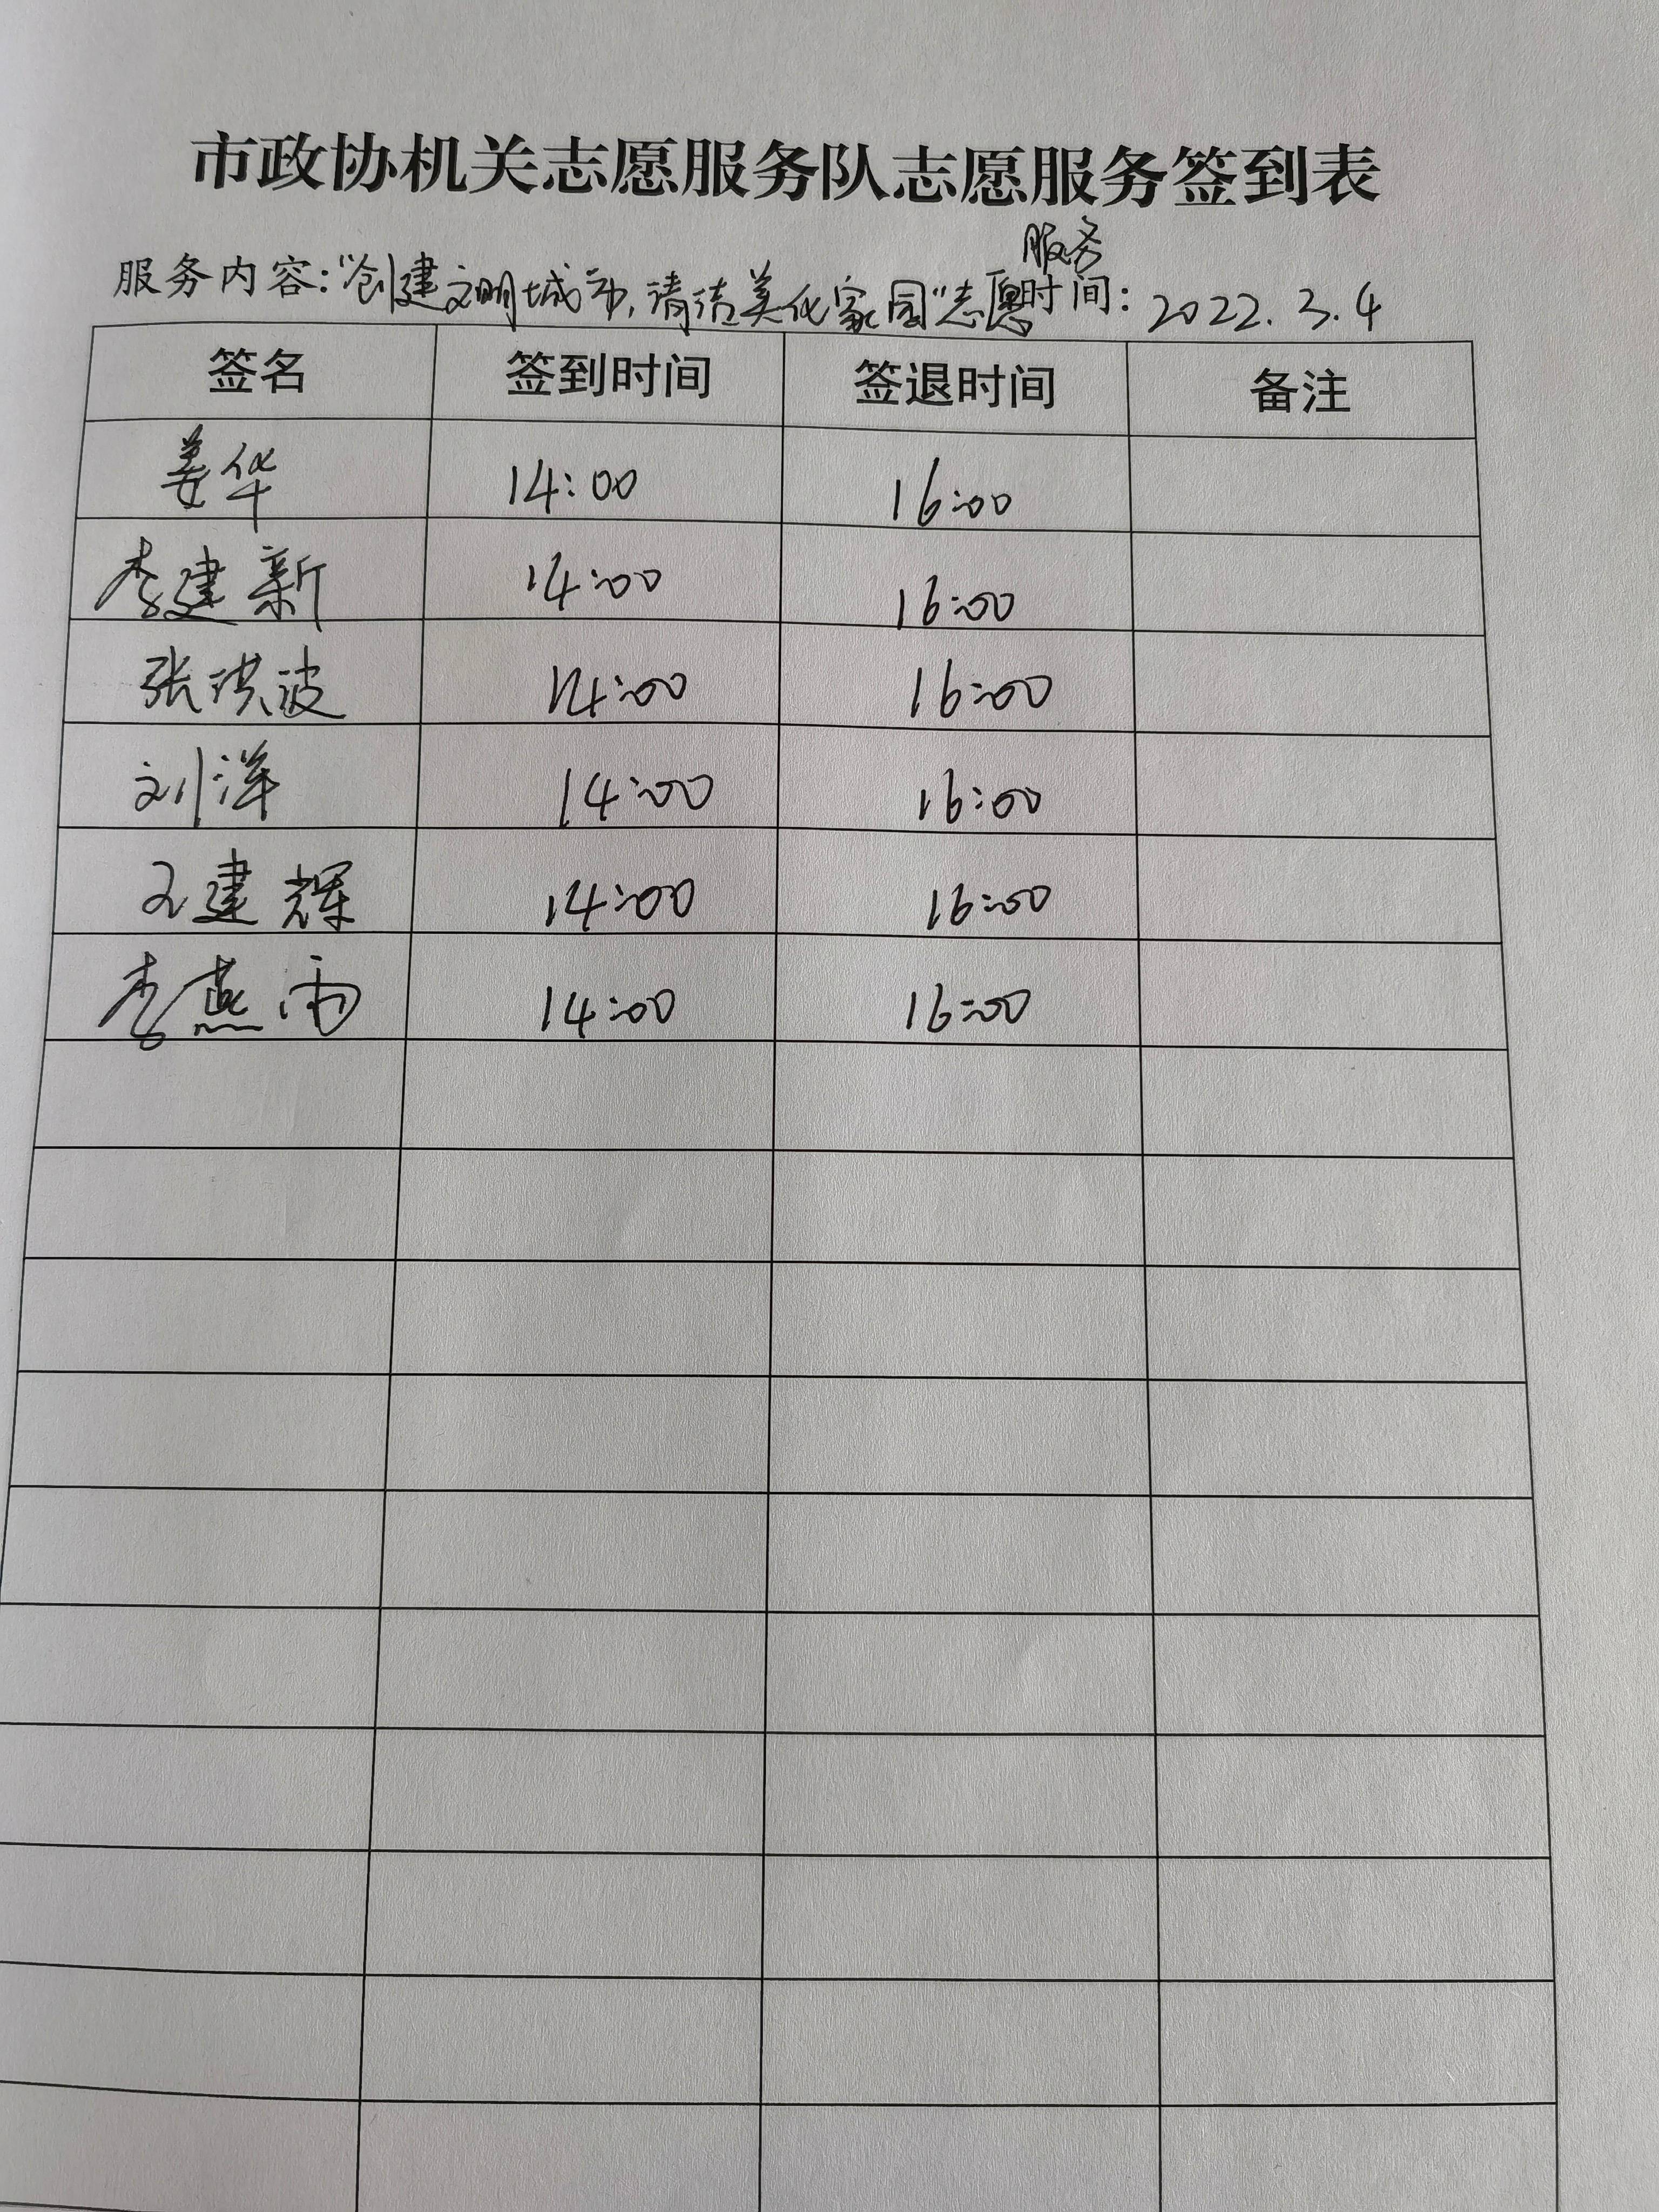 市政协机关志愿服务队志愿服务签到表
服务内容：“创建文明城市，清洁美化家园”志愿服务 时间：2022.3.4
签名 签到时间 签退时间 备注
姜华 14:00 16:00
李建新 14:00 16:00
张洪波 14:00 16:00
刘洋 14:00 16:00
王建辉 14:00 16:00
李燕雨 14:00 16:00